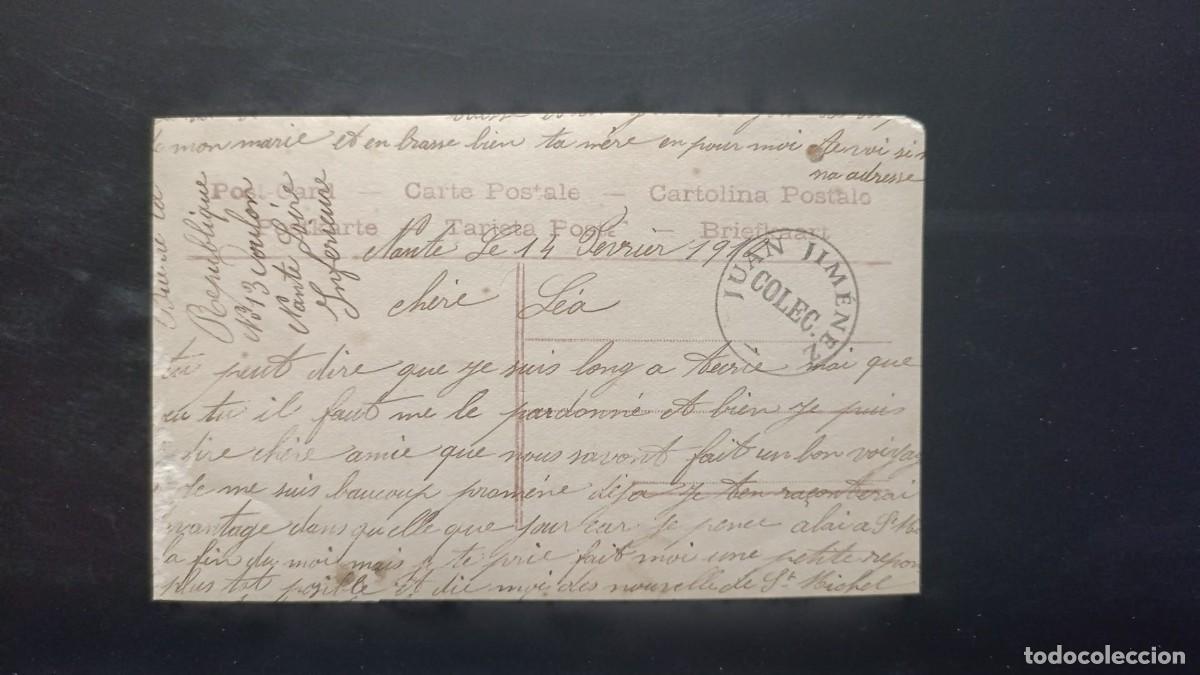 mon marie et en brasse bien ta mère en pour moi
adresse
Post-Card — Carte Postale — Cartolina Postale
Postkarte — Tarjeta Postal — Briefkaart
Republique
No 13 coulon
Nante Loire
Inferieure
Nante Le 14 Fevrier
JUAN JIMÉNEZ
COLEC.
chère Léa
tu peut dire que je suis long a tecrie mai que
tu il faut me le pardonné et bien je puis
dire chère amie que nous savont fait un bon voiyag
Je me suis baucoup promène deja je ten raconterai
vantage dans quelle que jour car je pence alai a St
a fin du moi mais je te prie fait moi une petite repon
plus tot posible et die moi des nouvelle de St Michel
todocoleccion